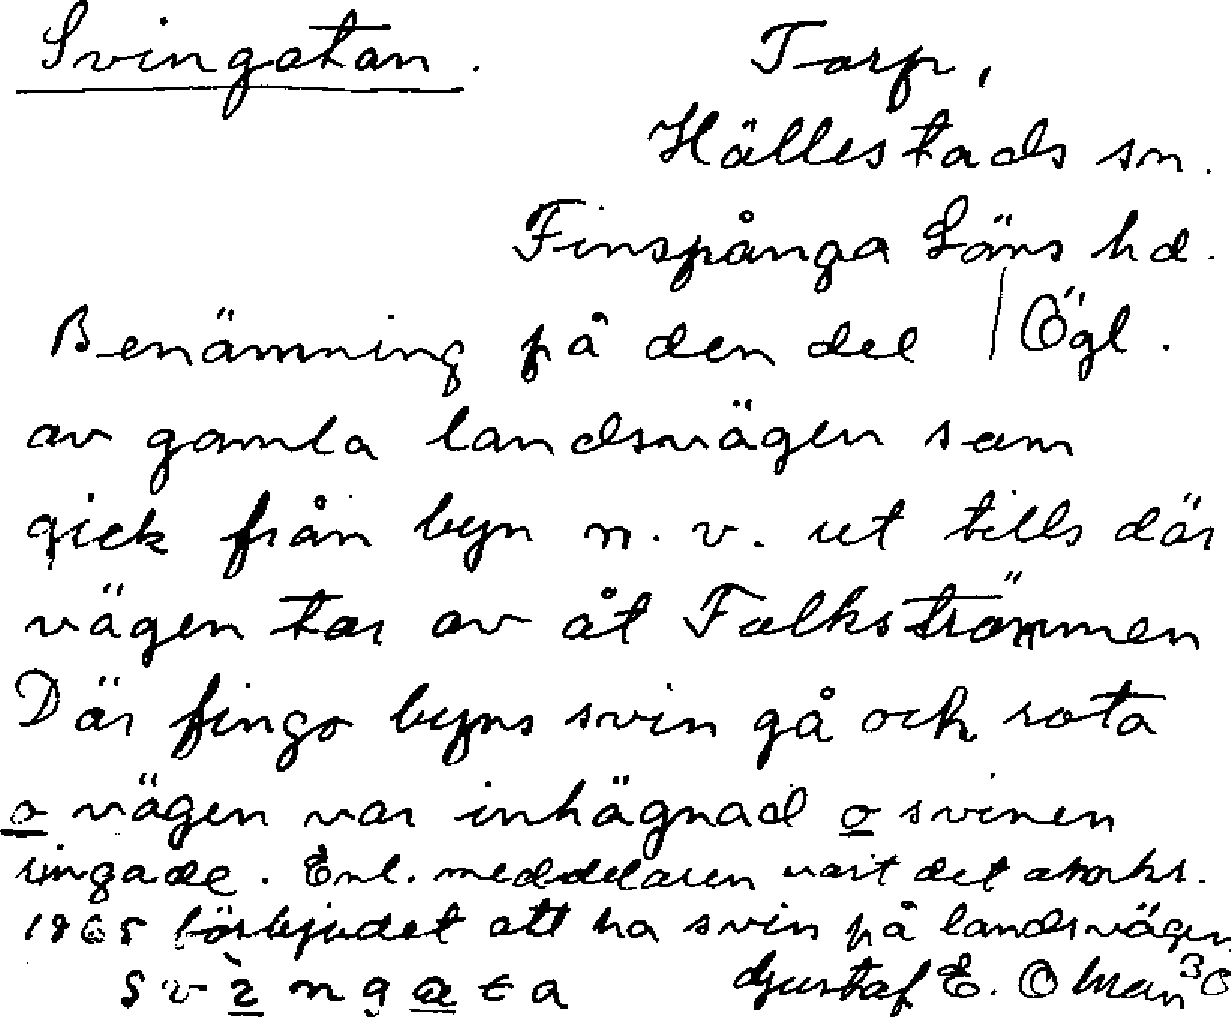 Svingatan.
Torp,
Hällestads sn.
Finspånga Läns hd.
Benämning på den del / Ögl.
av gamla landsvägen som
gick från byn n. v. ut tills där
vägen tar av åt Folkströmmen
Där fingo byns svin gå och rota
o vägen var inhägnad o svinen
ringade. Enl. meddelaren vart det
1865 förbjudet att ha svin på landsvägen
svìngata Gustaf E. Öman 30